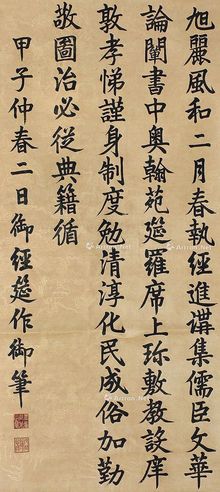 旭麗風和二月春執經進講集儒臣文華
論闡書中奧翰苑筵羅席上珎敷教設庠
敦孝悌謹身制度勉清淳化民成俗加勤
敬圖治必從典籍循
甲子仲春二日御經筵作御筆